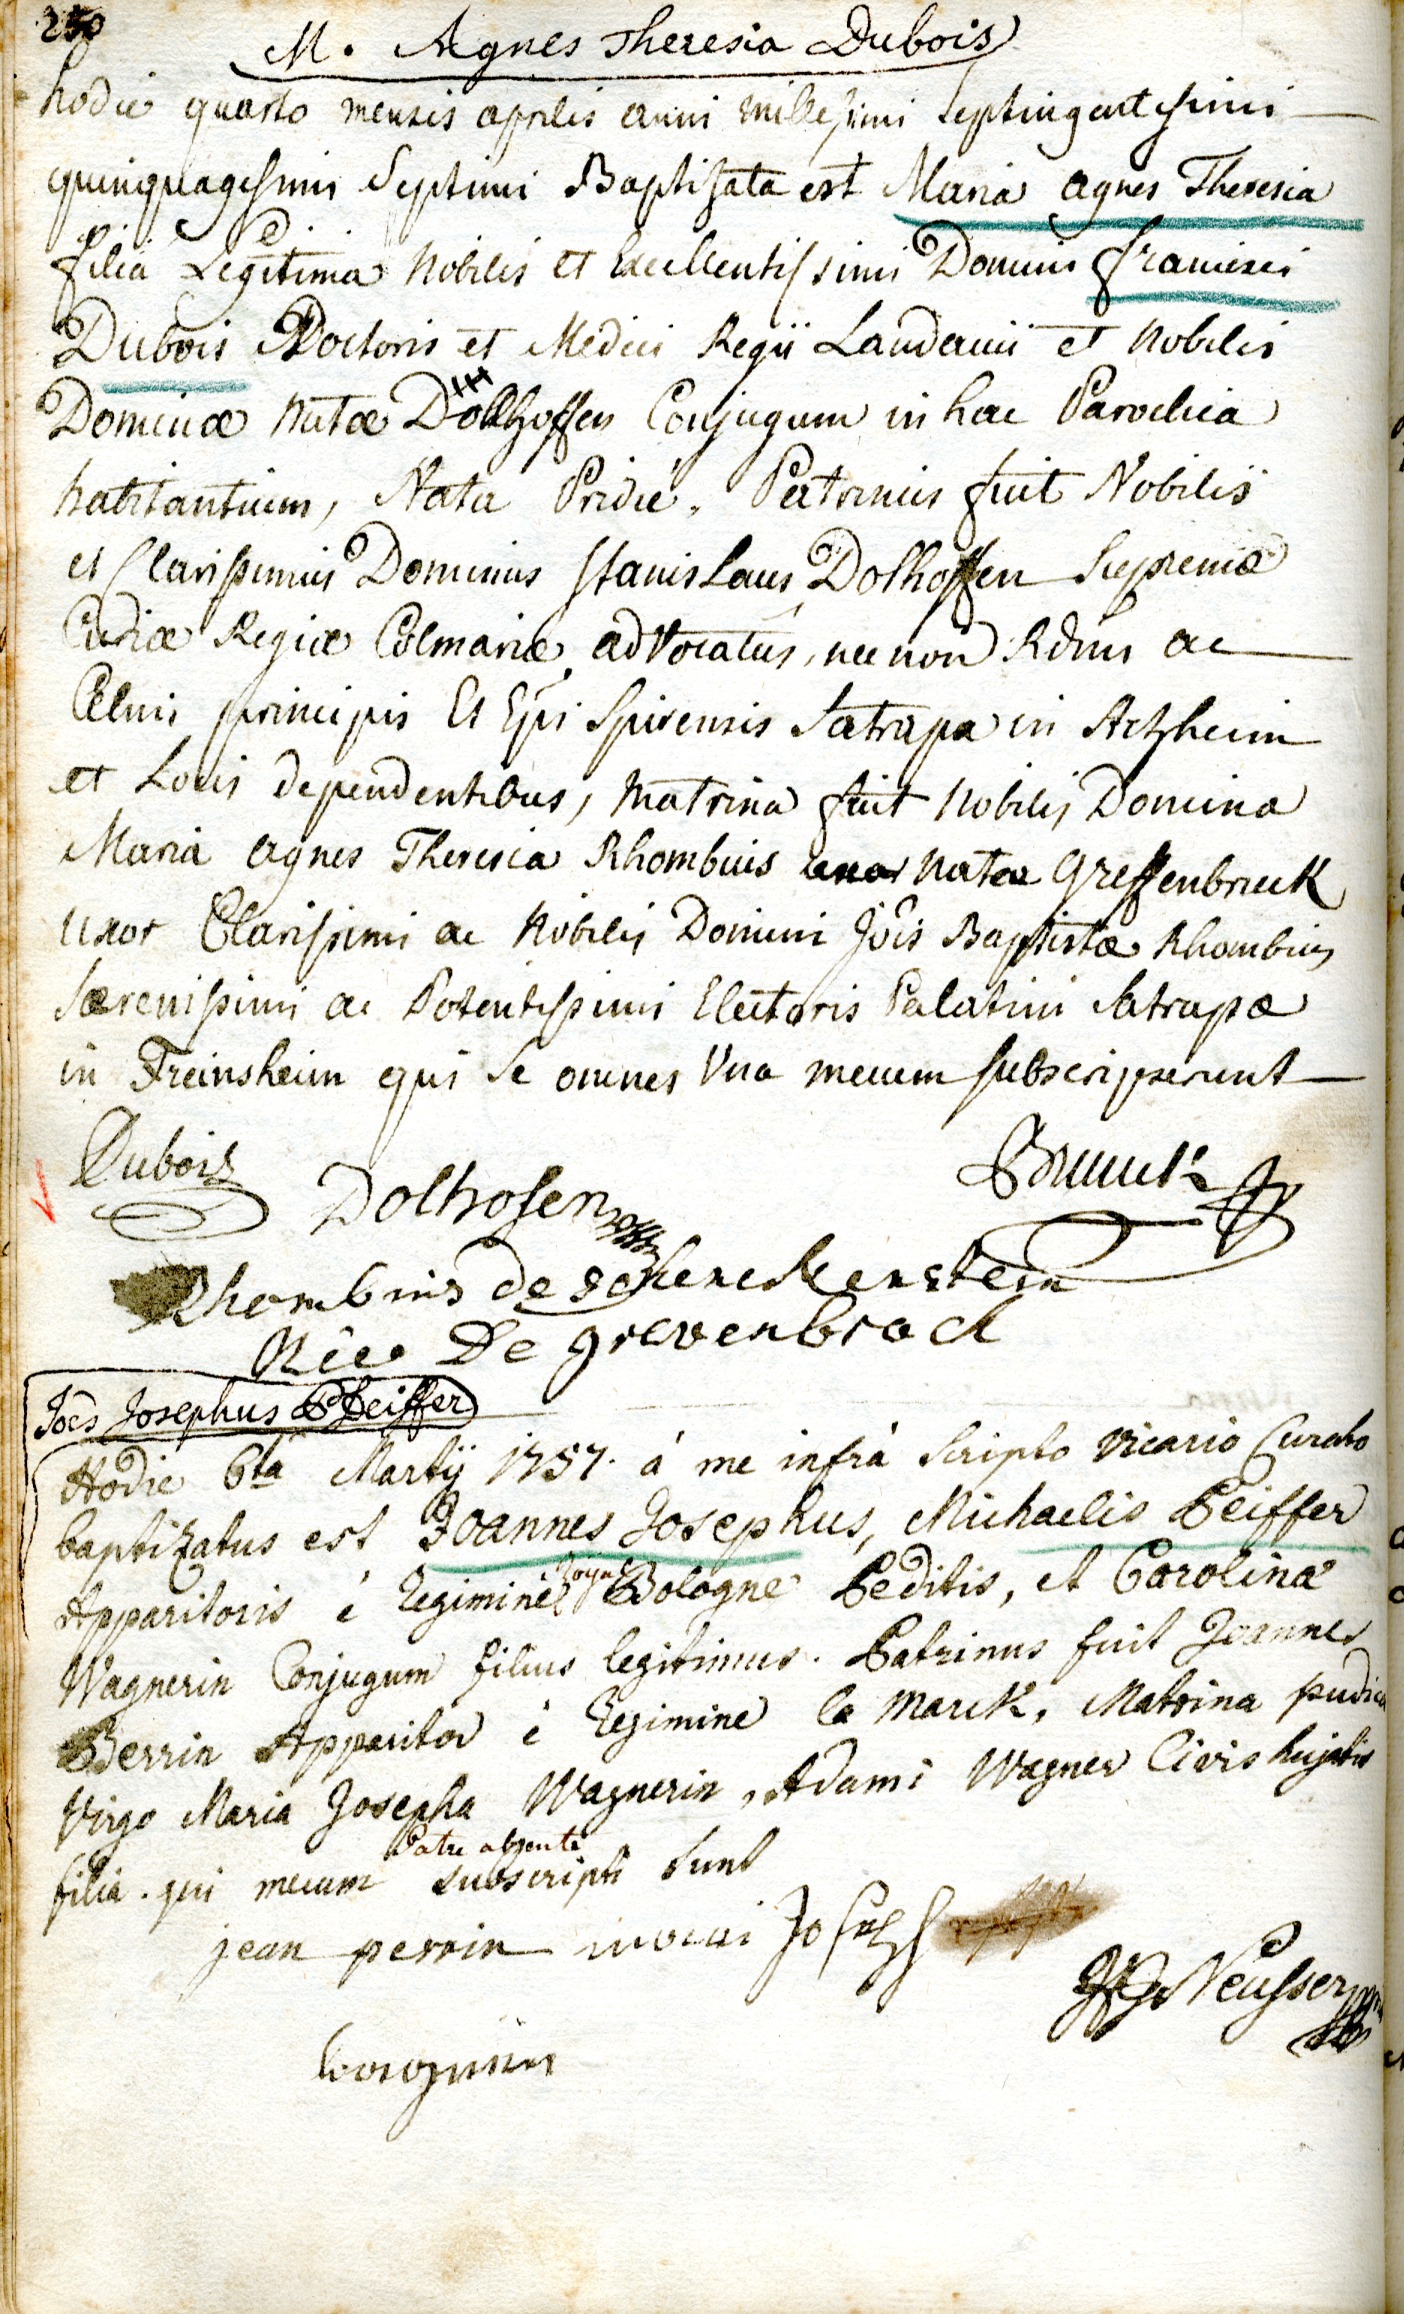 250
M. Agnes Theresia Dubois
hodie quarto mensis aprilis anni millesimi septingentesimi
quinquagesimi Septimi Baptisata est Maria agnes Theresia
filia Legitima Nobilis et Excellentissimi Domini francisci
Dubois Doctoris et Medici Regii Landavii et Nobilis
Dominæ Natæ Dollhoffen Conjugum in hac Parochia
habitantium, Nata Pridie. Patrinus fuit Nobilis
et Clarissimus Dominus Stanislaus Dolhoffen Supremæ
Curiæ Regiæ Colmariæ advocatus, nec non Rdmi ac
Celmi principis Et Epi Spirensis Satrapa in Artzheim
et Locis dependentibus, Matrina fuit Nobilis Domina
Maria Agnes Theresia Rhombius nata Greffenbruck
uxor Clarissimi ac Nobilis Domini Jois Baptistæ Rhombius
Særenissimi ac Potentissimi Electoris Palatini Satrapæ
in Freinsheim qui se omnes Una mecum subscripserunt
Dubois
Brunck
Dolhofen
Rhombius de schenckenstein
Née De grevenbrock
Joes Josephus Pfeiffer
Hodie 6ta Martij 1757. à me infrà scripto vicario Curato
baptizatus est Joannes Josephus, Michaelis Peiffer
Apparitoris è regimine royal Bologne Peditis, et Carolina
Wagnerin Conjugum filius legitimus. Patrinus fuit Joannes
Perrin Apparitor è regimine la Marck, Matrina pudica
Virgo Maria Josepha Wagnerin, Adami Wagner Civis hujatis
Patre absente
filia. qui mecum subscripti sunt
jean perrin
Neusser